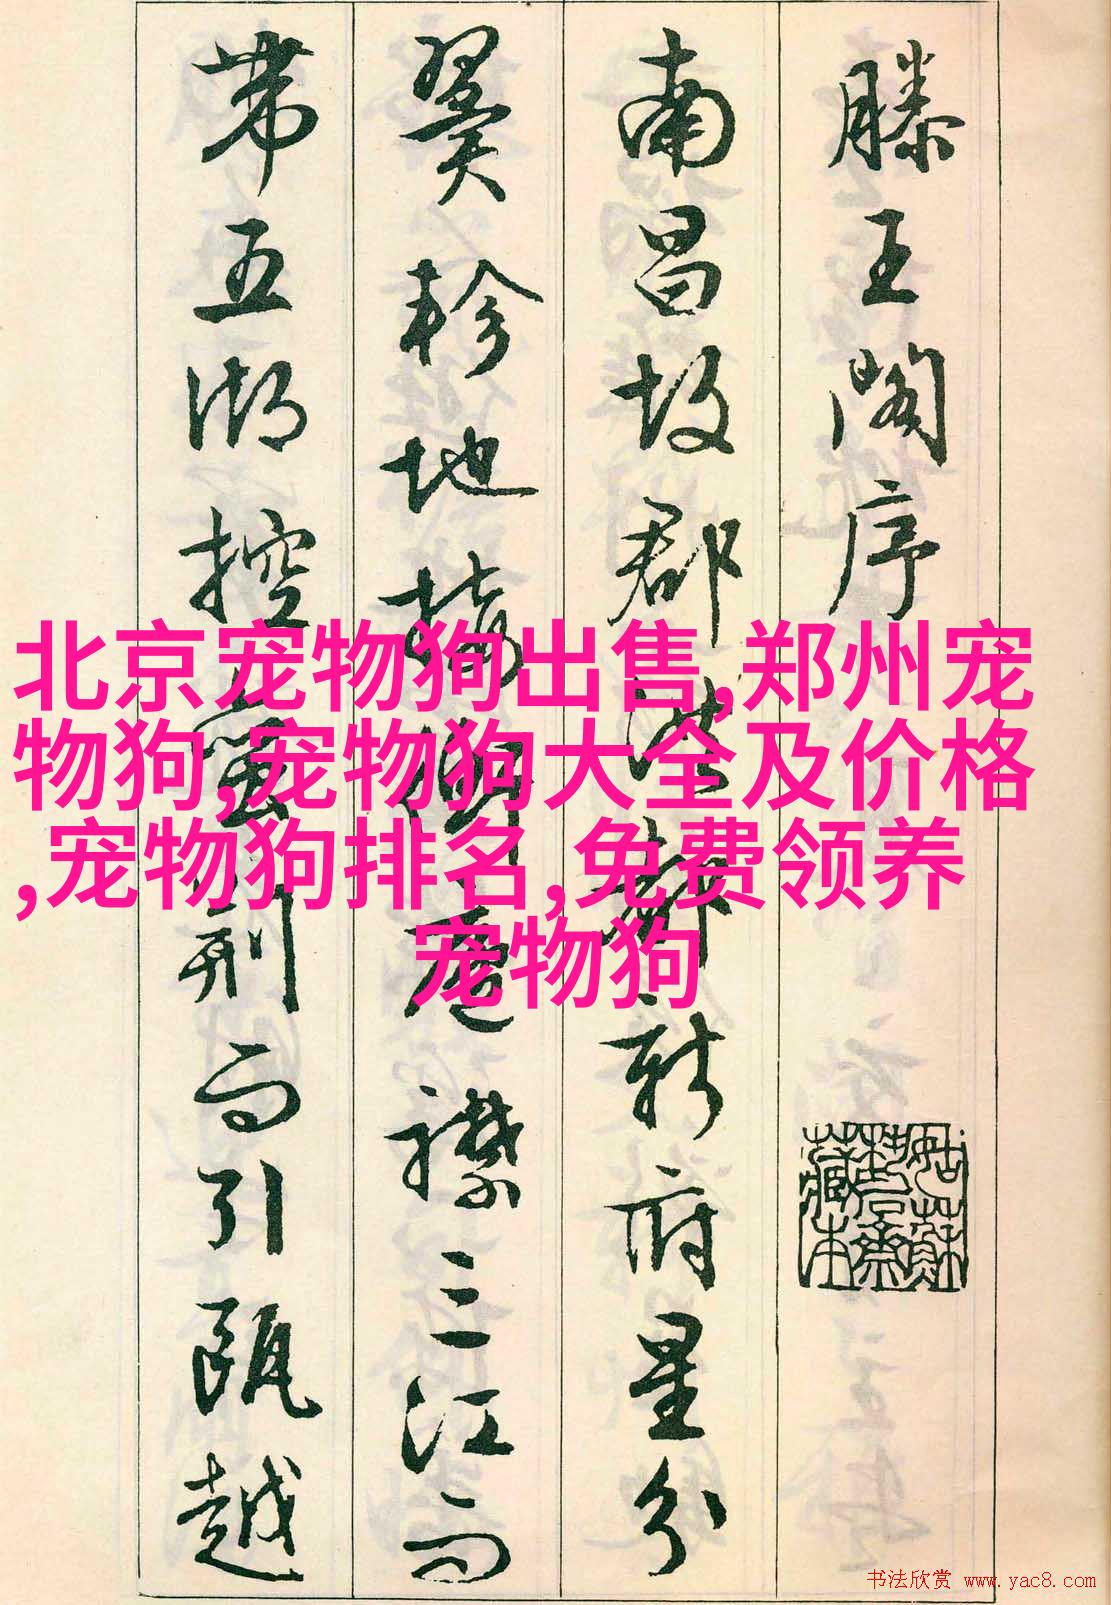 滕王閣序
南昌故郡洪都新府星分
翼軫地接衡廬襟三江而
帶五湖控蠻荆而引甌越
北京宠物狗出售,郑州宠
物狗,宠物狗大全及价格
,宠物狗排名,免费领养
宠物狗
书法欣赏 www.yac8.com